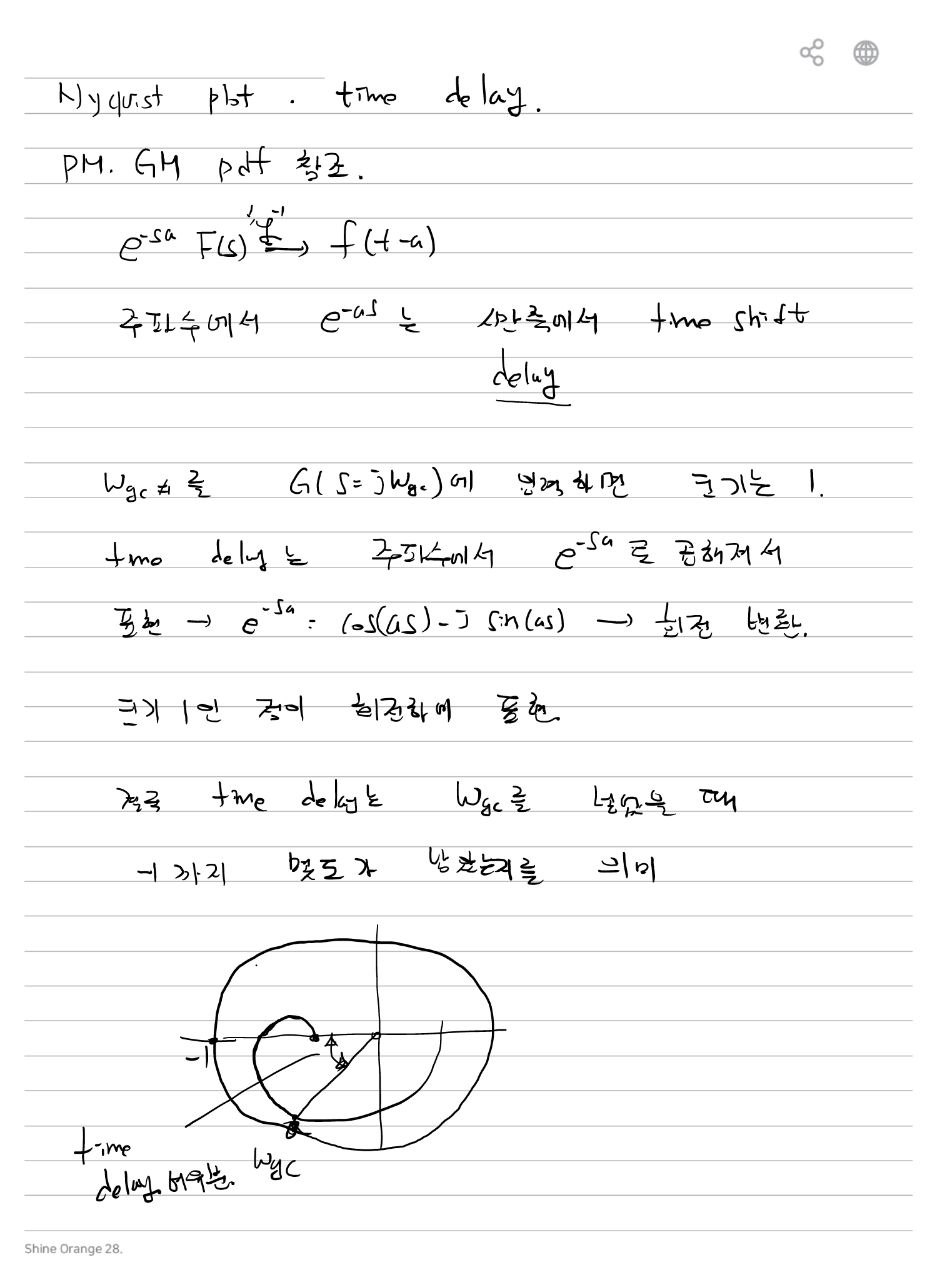 Nyquist plot . time delay.
PM. GM pdf 참조.
e^-sa F(s) ℒ^-1 → f(t-a)
주파수에서 e^-as 는 시간축에서 time shift
delay
Wgc 를 G(s=jWgc)에 입력하면 크기는 1.
time delay 는 주파수에서 e^-sa 로 곱해져서
표현 → e^-sa = cos(as)-j sin(as) → 회전 변환.
크기 1인 점이 회전하며 표현.
결국 time delay는 Wgc를 넣었을 때
-1 까지 몇도가 남았는지를 의미
-1
time
delay 여유분.
Wgc
Shine Orange 28.